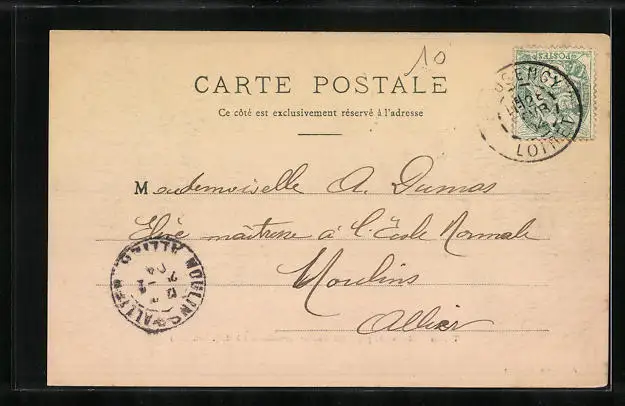 10
CARTE POSTALE
Ce côté est exclusivement réservé à l'adresse
POSTES
GENCY
LOIRET
Mademoiselle A. Dumas
Elève maîtresse à l'École Normale
Moulins
Allier
MOULINS
ALLIER
04